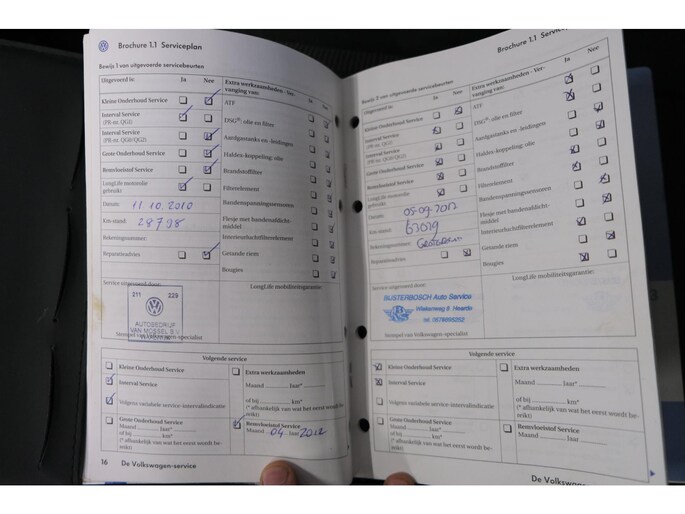 Brochure 1.1 Serviceplan
Bewijs 1 van uitgevoerde servicebeurten
Uitgevoerd is: Ja Nee
Extra werkzaamheden - Ver-
vanging van: Ja Nee
Kleine Onderhoud Service
ATF
Interval Service
(PR-nr. QG1)
DSG®: olie en filter
Interval Service
(PR-nr. QG0/QG2)
Aardgastanks en -leidingen
Grote Onderhoud Service
Haldex-koppeling: olie
Remvloeistof Service
Brandstoffilter
LongLife motorolie
gebruikt
Filterelement
Datum: 11.10.2010
Bandenspanningssensoren
Km-stand: 28798
Flesje met bandenafdicht-
middel
Rekeningnummer:
Interieurluchtfilterelement
Reparatieadvies
Gerande riem
Bougies
Service uitgevoerd door:
LongLife mobiliteitsgarantie:
211 229
AUTOBEDRIJF
VAN MOSSEL B.V.
Stempel van Volkswagen-specialist
Volgende service
Kleine Onderhoud Service
Extra werkzaamheden
Interval Service
Maand Jaar*
Volgens variabele service-intervalindicatie
of bij km*
(* afhankelijk van wat het eerst wordt be-
reikt)
Grote Onderhoud Service
Maand Jaar*
of bij km*
(* afhankelijk van wat het eerst wordt be-
reikt)
Remvloeistof Service
Maand 04 Jaar 2012
16 De Volkswagen-service
Brochure 1.1 Serviceplan
Bewijs 2 van uitgevoerde servicebeurten
Uitgevoerd is: Ja Nee
Extra werkzaamheden - Ver-
vanging van: Ja Nee
Kleine Onderhoud Service
ATF
Interval Service
(PR-nr. QG1)
DSG®: olie en filter
Interval Service
(PR-nr. QG0/QG2)
Aardgastanks en -leidingen
Grote Onderhoud Service
Haldex-koppeling: olie
Remvloeistof Service
Brandstoffilter
LongLife motorolie
gebruikt
Filterelement
Datum: 05-09-2012
Bandenspanningssensoren
Km-stand: 63029
Flesje met bandenafdicht-
middel
Rekeningnummer:
Interieurluchtfilterelement
Reparatieadvies
Gerande riem
Bougies
Service uitgevoerd door:
LongLife mobiliteitsgarantie:
BUSTERBOSCH Auto Service
Stempel van Volkswagen-specialist
Volgende service
Kleine Onderhoud Service
Extra werkzaamheden
Interval Service
Maand Jaar*
Volgens variabele service-intervalindicatie
of bij km*
(* afhankelijk van wat het eerst wordt be-
reikt)
Grote Onderhoud Service
Maand Jaar*
of bij km*
(* afhankelijk van wat het eerst wordt be-
reikt)
Remvloeistof Service
Maand Jaar
De Volkswagen